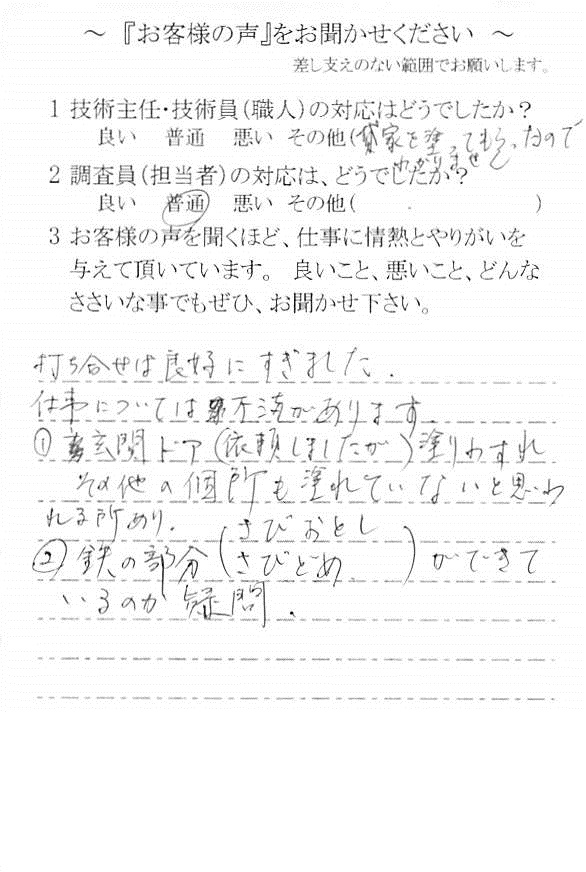 ～『お客様の声』をお聞かせください ～
差し支えのない範囲でお願いします。
1 技術主任・技術員(職人)の対応はどうでしたか?
良い 普通 悪い その他(貸家を塗ってもらったので
わかりません
2 調査員(担当者)の対応は、どうでしたか?
良い 普通 悪い その他( )
3 お客様の声を聞くほど、仕事に情熱とやりがいを
与えて頂いています。 良いこと、悪いこと、どんな
ささいな事でもぜひ、お聞かせ下さい。
打ち合せは良好にすぎました.
仕事については不満があります.
① 玄関ドア(依頼しましたが)塗りわすれ
その他の個所も塗れていないと思わ
れる所あり.
② 鉄の部分(さびおとし
さびどめ)ができて
いるのか疑問.